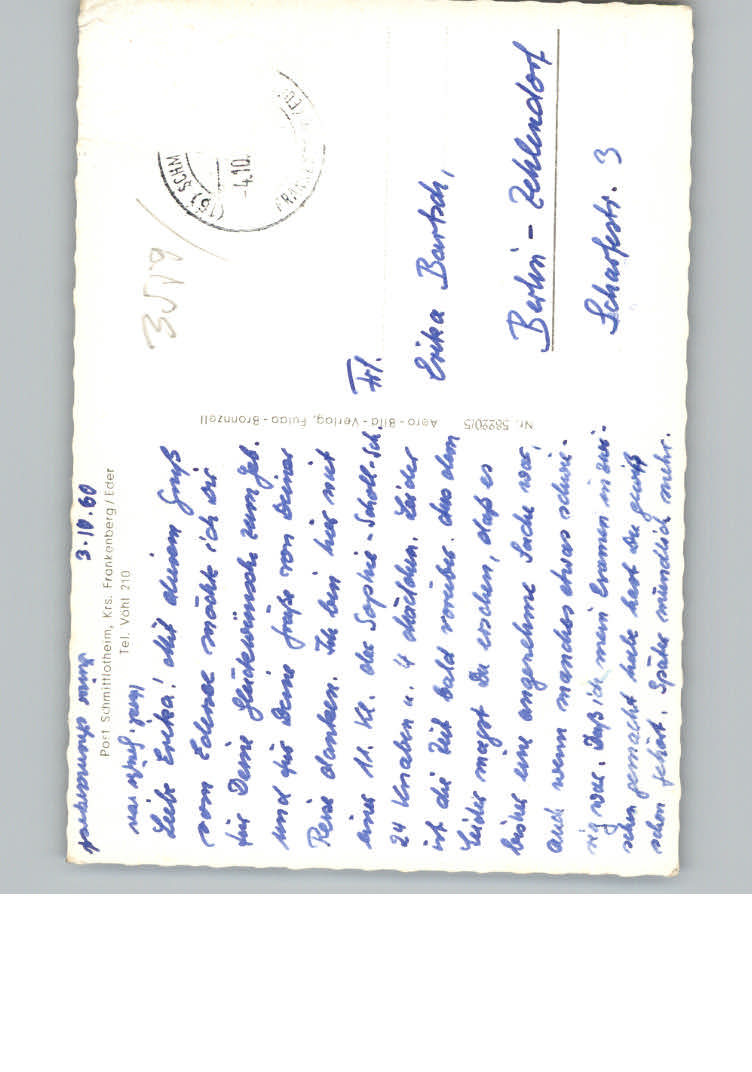 3.10.60
Post Schmittlotheim, Krs. Frankenberg/Eder
Tel. Vöhl 210
Liebe Erika! Mit diesem Gruß
vom Edersee möchte ich Dir
für Deine Glückwünsche zum Geb.
und für Deine Grüße von Deiner
Reise danken. Ich bin hier mit
einer 11. Kl. der Sophie-Scholl-Sch.
24 Knaben u. 4 Mädchen. Leider
ist die Zeit bald vorüber. Aus dem
leider magst Du ersehen, daß es
bisher eine angenehme Sache war,
auch wenn manches etwas schwie-
rig war. Daß ich mein Examen inzwi-
schen gemacht habe hast Du gewiß
schon gehört. Später mündlich mehr.
Nr. 58220/5 Aero-Bild-Verlag, Fulda-Bronnzell
(16) SCHM
-4.10.
Frl.
Erika Bartsch,
Berlin-Zehlendorf
Scharfestr. 3